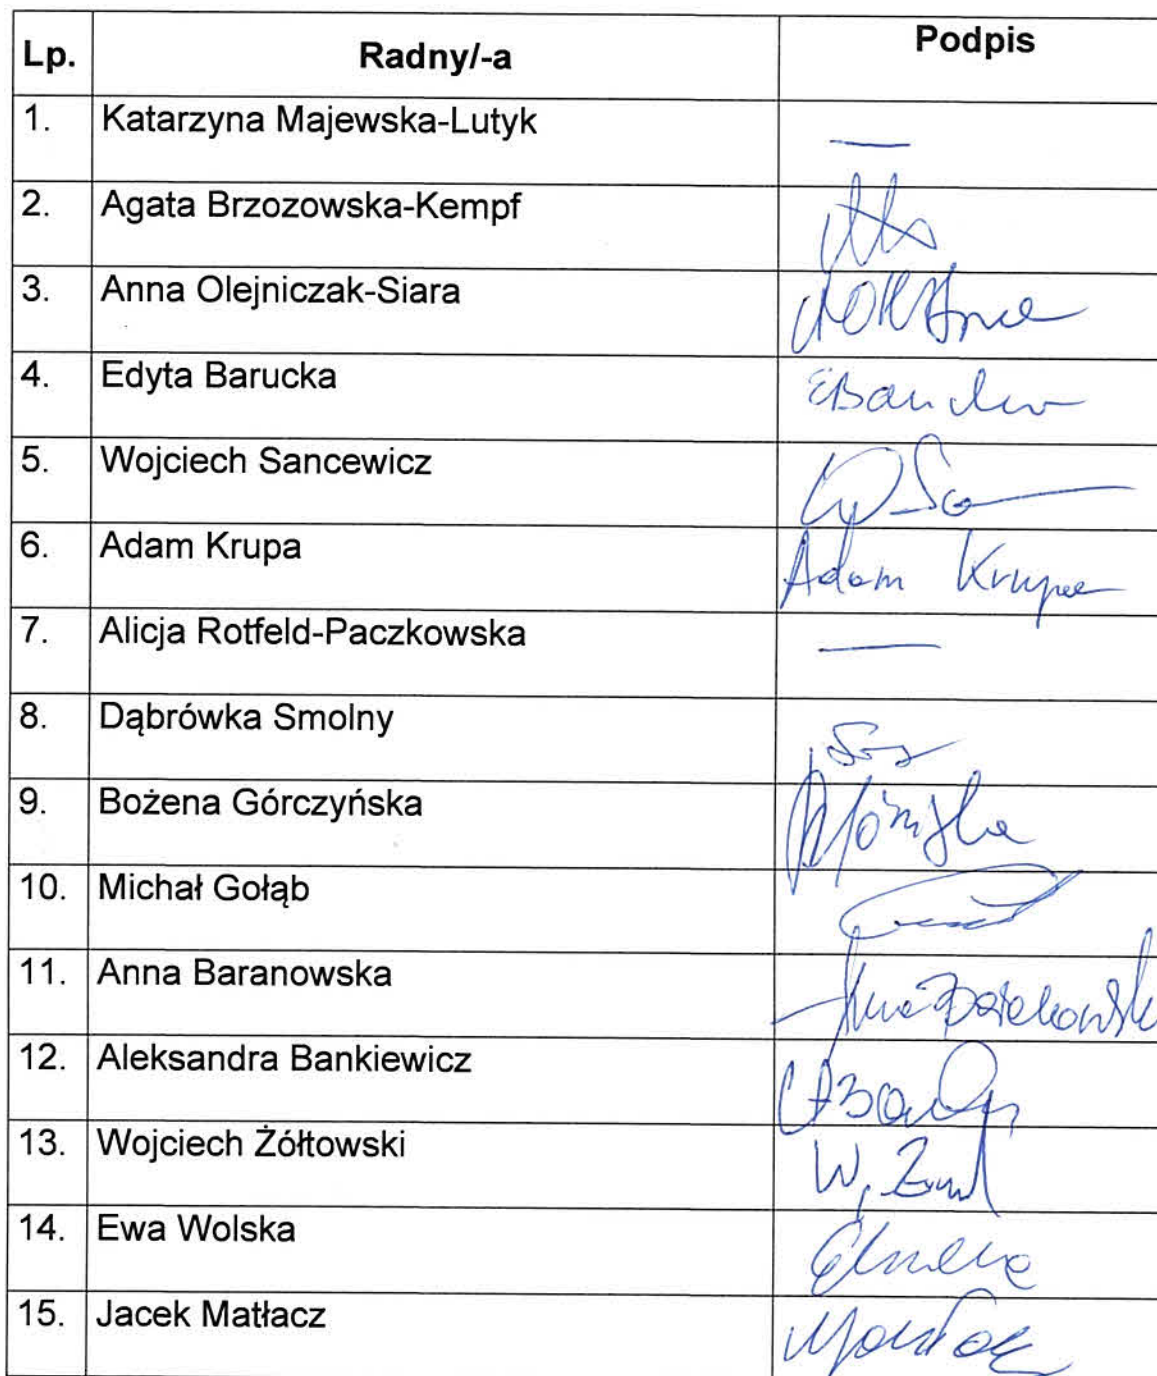 Lp. Radny/-a Podpis
1. Katarzyna Majewska-Lutyk —
2. Agata Brzozowska-Kempf
3. Anna Olejniczak-Siara
4. Edyta Barucka
5. Wojciech Sancewicz
6. Adam Krupa Adam Krupa
7. Alicja Rotfeld-Paczkowska —
8. Dąbrówka Smolny
9. Bożena Górczyńska
10. Michał Gołąb
11. Anna Baranowska
12. Aleksandra Bankiewicz
13. Wojciech Żółtowski
14. Ewa Wolska
15. Jacek Matłacz